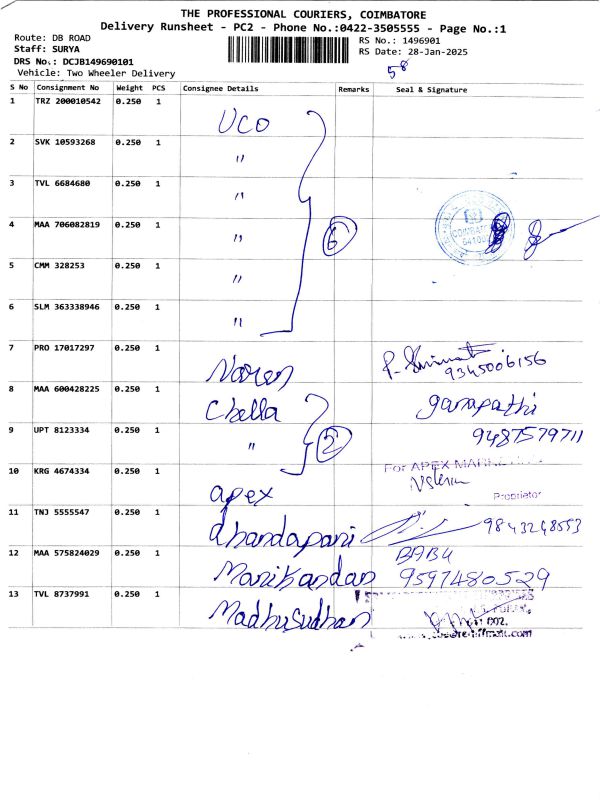 THE PROFESSIONAL COURIERS, COIMBATORE
Delivery Runsheet - PC2 - Phone No.:0422-3505555 - Page No.:1
Route: DB ROAD
RS No.: 1496901
Staff: SURYA
RS Date: 28-Jan-2025
DRS No.: DCJB149690101
58
Vehicle: Two Wheeler Delivery
S No Consignment No Weight PCS Consignee Details Remarks Seal & Signature
1 TRZ 200010542 0.250 1 UCO
2 SVK 10593268 0.250 1 "
3 TVL 6684680 0.250 1 "
4 MAA 706082819 0.250 1 " 6
5 CMM 328253 0.250 1 "
6 SLM 363338946 0.250 1 "
7 PRO 17017297 0.250 1 Naren 9345006156
8 MAA 600428225 0.250 1 Chella ganapathi
9 UPT 8123334 0.250 1 " 2 9487579711
10 KRG 4674334 0.250 1 apex For APEX
Proprietor
11 TNJ 5555547 0.250 1 dhandapani 9843248553
12 MAA 575824029 0.250 1 Manikandan BABU 9597480529
13 TVL 8737991 0.250 1 Madhusudhan